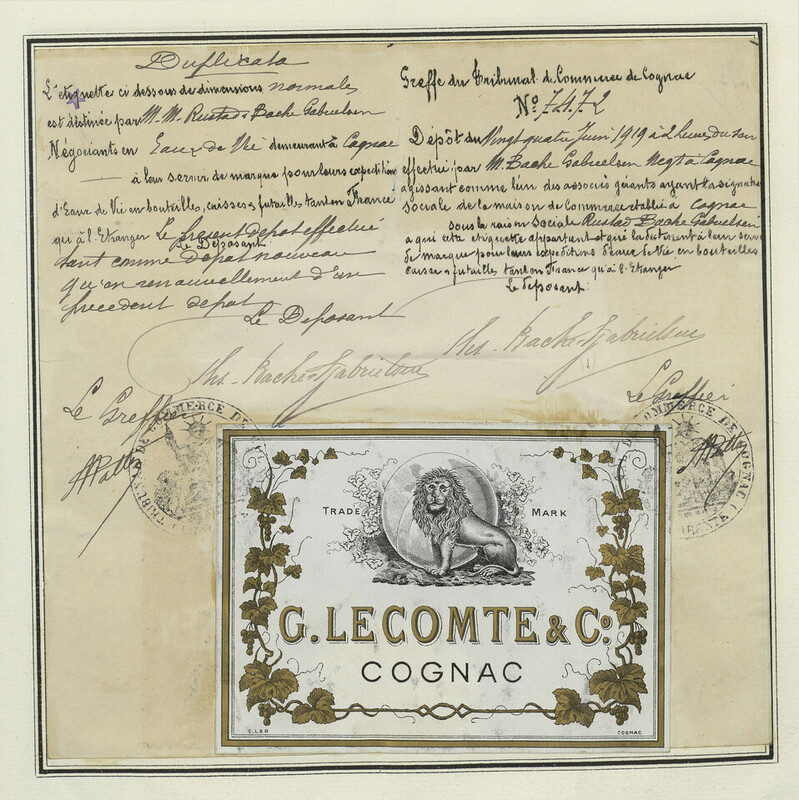 Duplicata
L'etiquette ci dessous de dimensions normales
est destinée par M. M. Rustad & Bache Gabrielsen
Négociants en Eaux de Vie demeurant à Cognac
à leur servir de marque pour leurs expéditions
d'Eaux de Vie en bouteilles, caisses & futailles tant en France
qu'à l'Etranger Le présent dépot effectué
Le Deposant
tant comme dépot nouveau
qu'en renouvellement d'un
précédent dépot
Le Deposant
Ths. Bache-Gabrielsen
Le Greffier
Greffe du Tribunal de Commerce de Cognac
No. 7472
Dépôt du Vingt quatre Juin 1919 à 2 heures du soir
effectué par M. Bache Gabrielsen Negt à Cognac
agissant comme l'un des associés gérants ayant la signature
sociale de la maison de Commerce établie à Cognac
sous la raison Sociale Rustad Bache Gabrielsen
à qui cette etiquette appartient et qui la destinent à leur servir
de marque pour leurs expéditions d'eaux de Vie en bouteilles
caisses & futailles tant en France qu'à l'Etranger
Le deposant:
Ths. Bache-Gabrielsen
Le Greffier
TRIBUNAL DE COMMERCE DE
COMMERCE DE COGNAC
TRADE MARK
G. LECOMTE & Co.
COGNAC
COGNAC